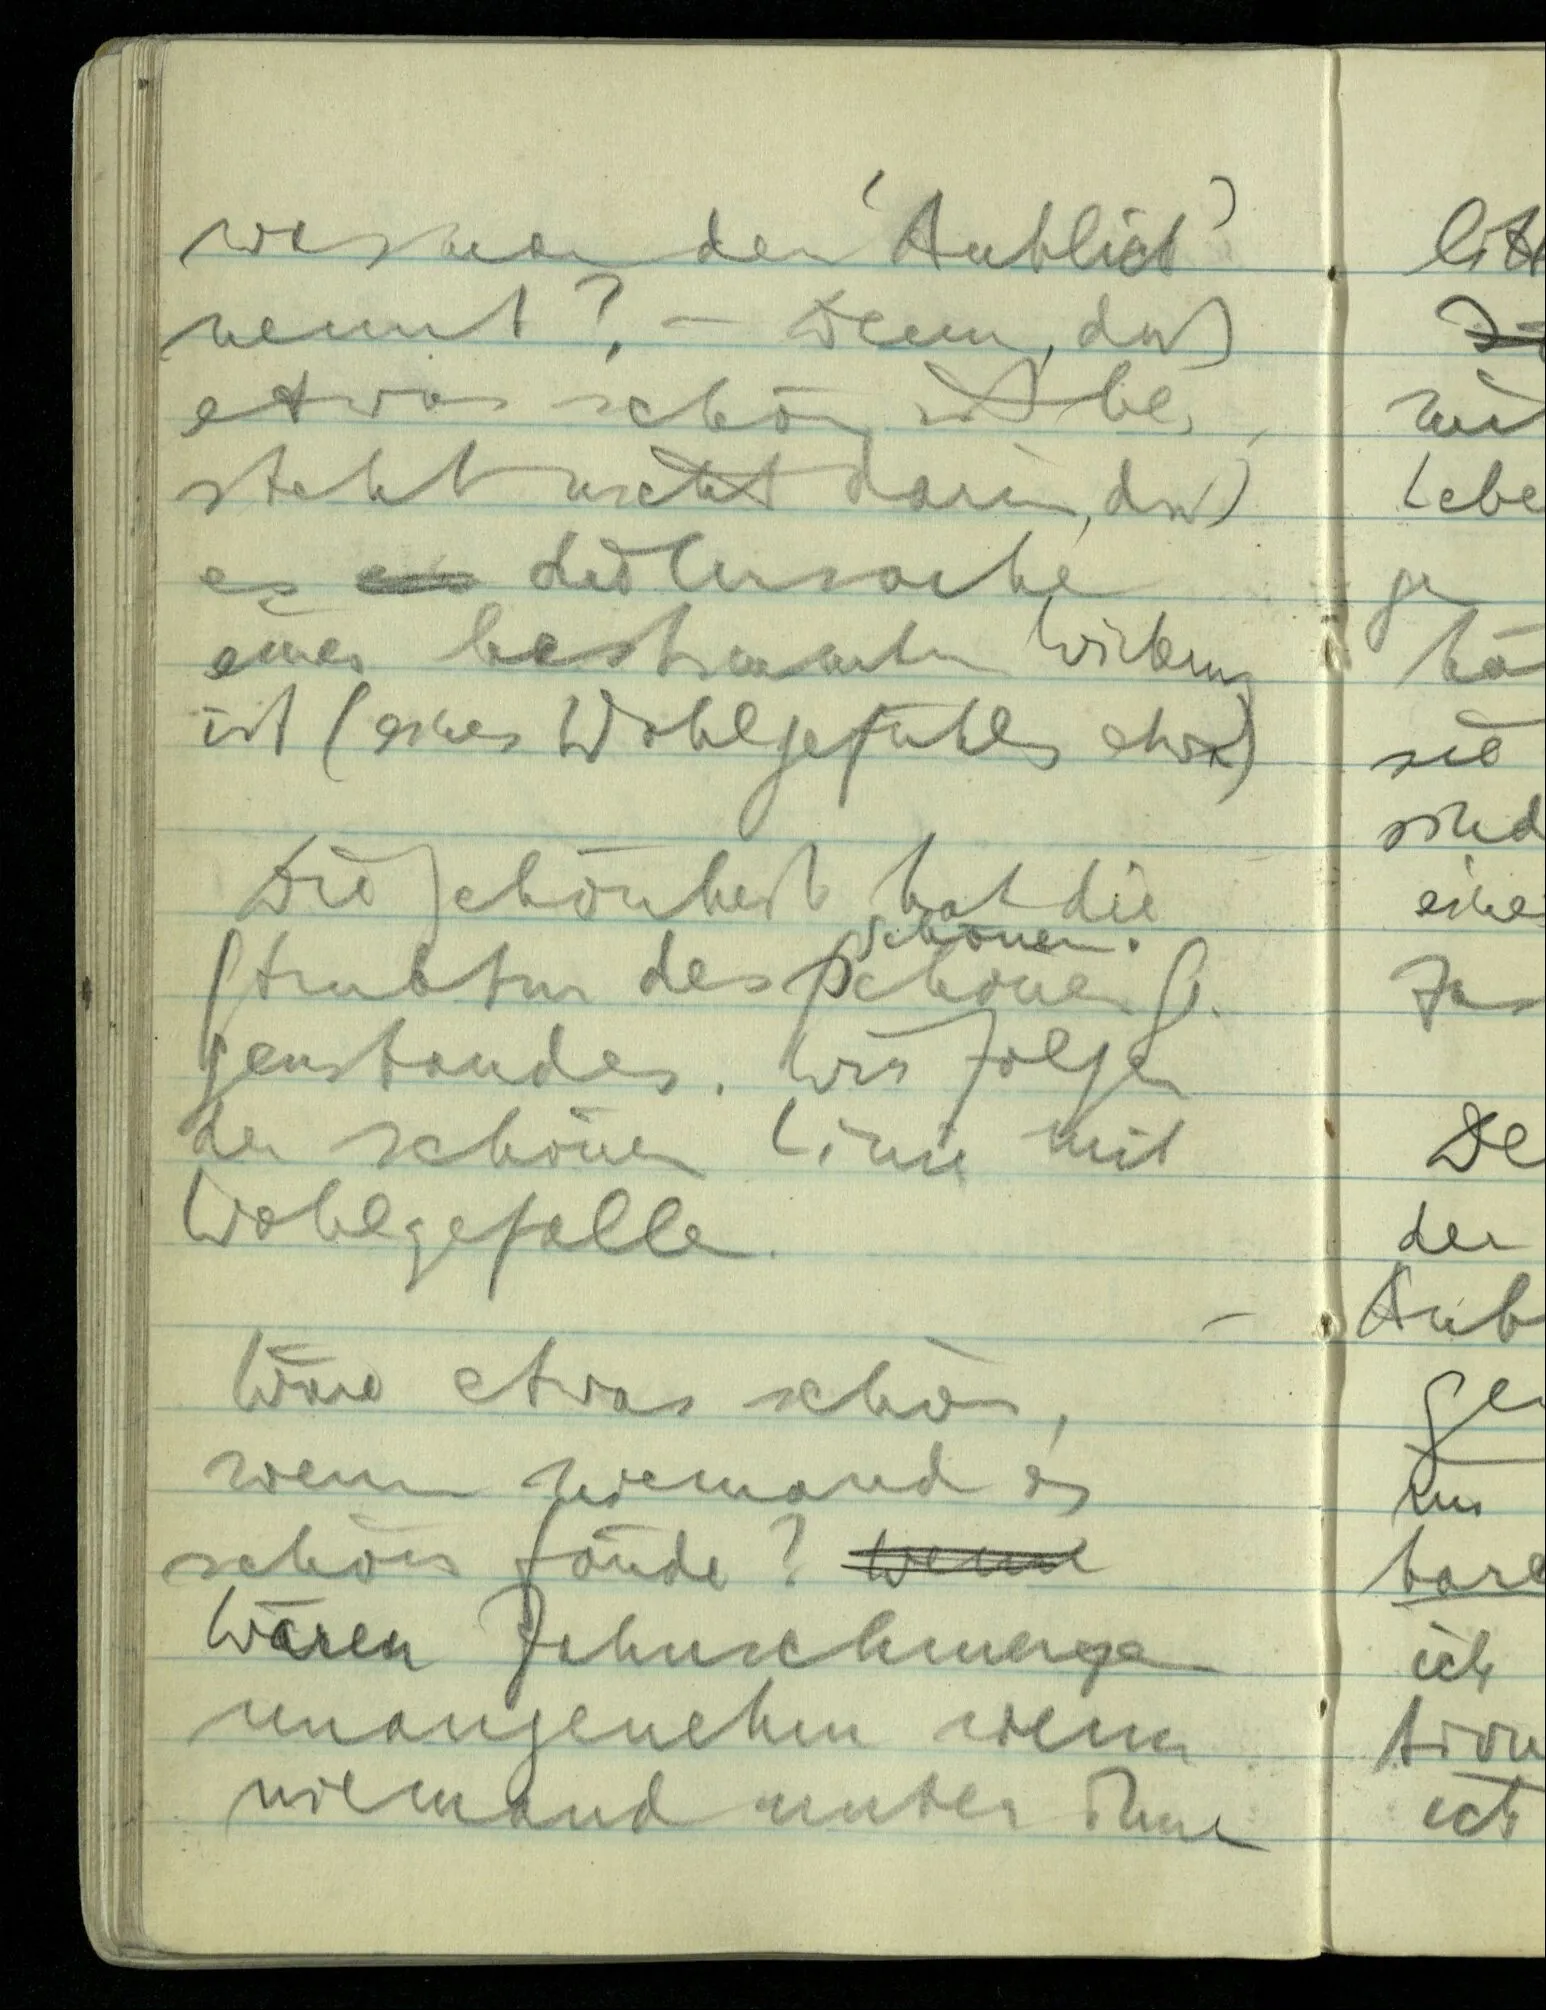 was man den 'Anblick'
nennt? – Denn, daß
etwas schön ist be-
steht nicht darin, daß
es die Ursache
einer bestimmten Wirkung
ist (eines Wohlgefühles etwa)
Die Schönheit hat die
schönen
Struktur des schönen Ge-
genstandes. Wir folgen
der schönen Linie mit
Wohlgefallen.
Wäre etwas schön,
wenn niemand es
schön fände? Wenn
Wären Zahnschmerzen
unangenehm wenn
niemand unter ihnen
litt
mit
Lebe
ge
sie
sind
eine
De
der
Anb
gen
zur
bare
ich
tion
ich